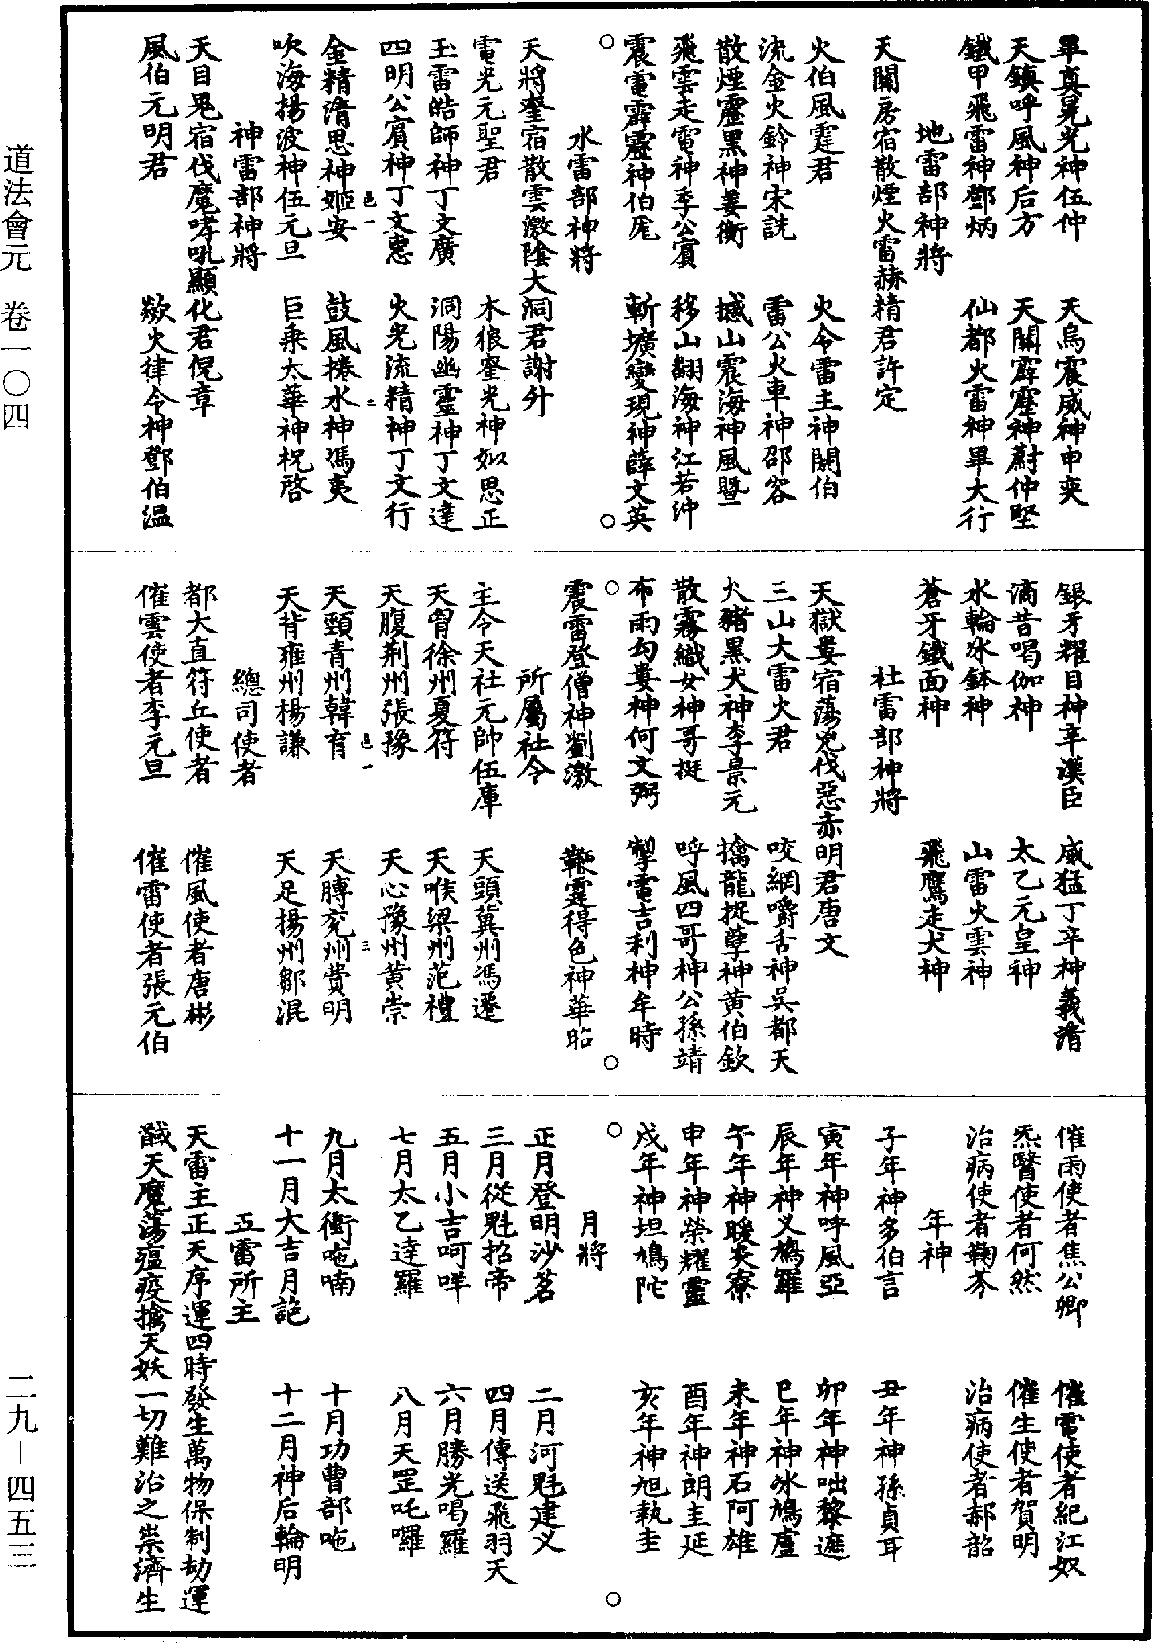 畢真晃光神伍仲　天烏震威神申奕
天鎮呼風神后方　天關霹靂神蔚仲堅
鐵甲飛雷神鄧炳　仙都火雷神畢大行
地雷部神將
天關房宿散煙火雷赫精君許定
火伯風霆君　火令雷主神閼伯
流金火鈴神宋詵　雷公火車神邵容
散煙靈黑神姜衡　撼山震海神風暨
飛雲走電神季公賓　移山翻海神江若沖
震電霹靂神伯厖　斬壙變現神薛文英
水雷部神將
天將奎宿散雲激陰大洞君謝外
電光元聖君　木狼奎光神如思正
玉雷皓師神丁文廣　洞陽幽靈神丁文達
四明公賓神丁文惠　火光流精神丁文行
金精滑思神姬安　鼓風捲水神馮夷
吹海揚波神伍元旦　巨乘太華神柷啓
神雷部神將
天目鬼宿伐魔哮吼顯化君倪章
風伯元明君　歘火律令神鄧伯溫
銀牙耀目神辛漢臣　威猛丁辛神義潽
滴昔喝伽神　太乙元皇神
水輪水鉢神　山雷火雲神
蒼牙鐵面神　飛鷹走犬神
社雷部神將
天獄婁宿蕩兇伐惡赤明君唐文
三山大雷火君　咬網嚼舌神吳都天
火豬黑犬神李景元　擒龍捉孽神黃伯欽
散霧織女神哥挺　呼風四哥神公孫靖
布雨勾婁神何文弼　掣電吉利神牟時
震雷登僧神劉激　鞭霆得色神華昭
所屬社令
主令天社元帥伍庫　天頭冀州馮遷
天胷徐州夏符　天喉梁州范禮
天腹荆州張豫　天心豫州黃崇
天頸青州韓育　天膊兖州費明
天背雍州楊謙　天足揚州鄒混
總司使者
都大直符丘使者　催風使者唐彬
催雲使者李元旦　催雷使者張元伯
催雨使者焦公卿　催電使者紀江奴
炁醫使者何然　催生使者賀明
治病使者鞠芬　治病使者郝韶
年神
子年神多伯言　丑年神孫貞耳
寅年神呼風亞　卯年神咄黎遮
辰年神义鳩羅　巳年神冰鳩盧
午年神暖炎寮　未年神石阿雄
申年神榮耀靈　酉年神朗圭延
戌年神坦鳩陀　亥年神旭執圭
月將
正月登明沙茗　二月河魁建义
三月從魁招帝　四月傳送飛羽天
五月小吉呵咩　六月勝光喝羅
七月太乙達羅　八月天罡吒囉
九月太衝吔喃　十月功曹部吔
十一月大吉月詑　十二月神后輪明
五雷所主
天雷王正天序運四時發生萬物保制劫運
馘天魔蕩瘟疫擒天妖一切難治之祟濟生
道法會元　卷一〇四
二九—四五三